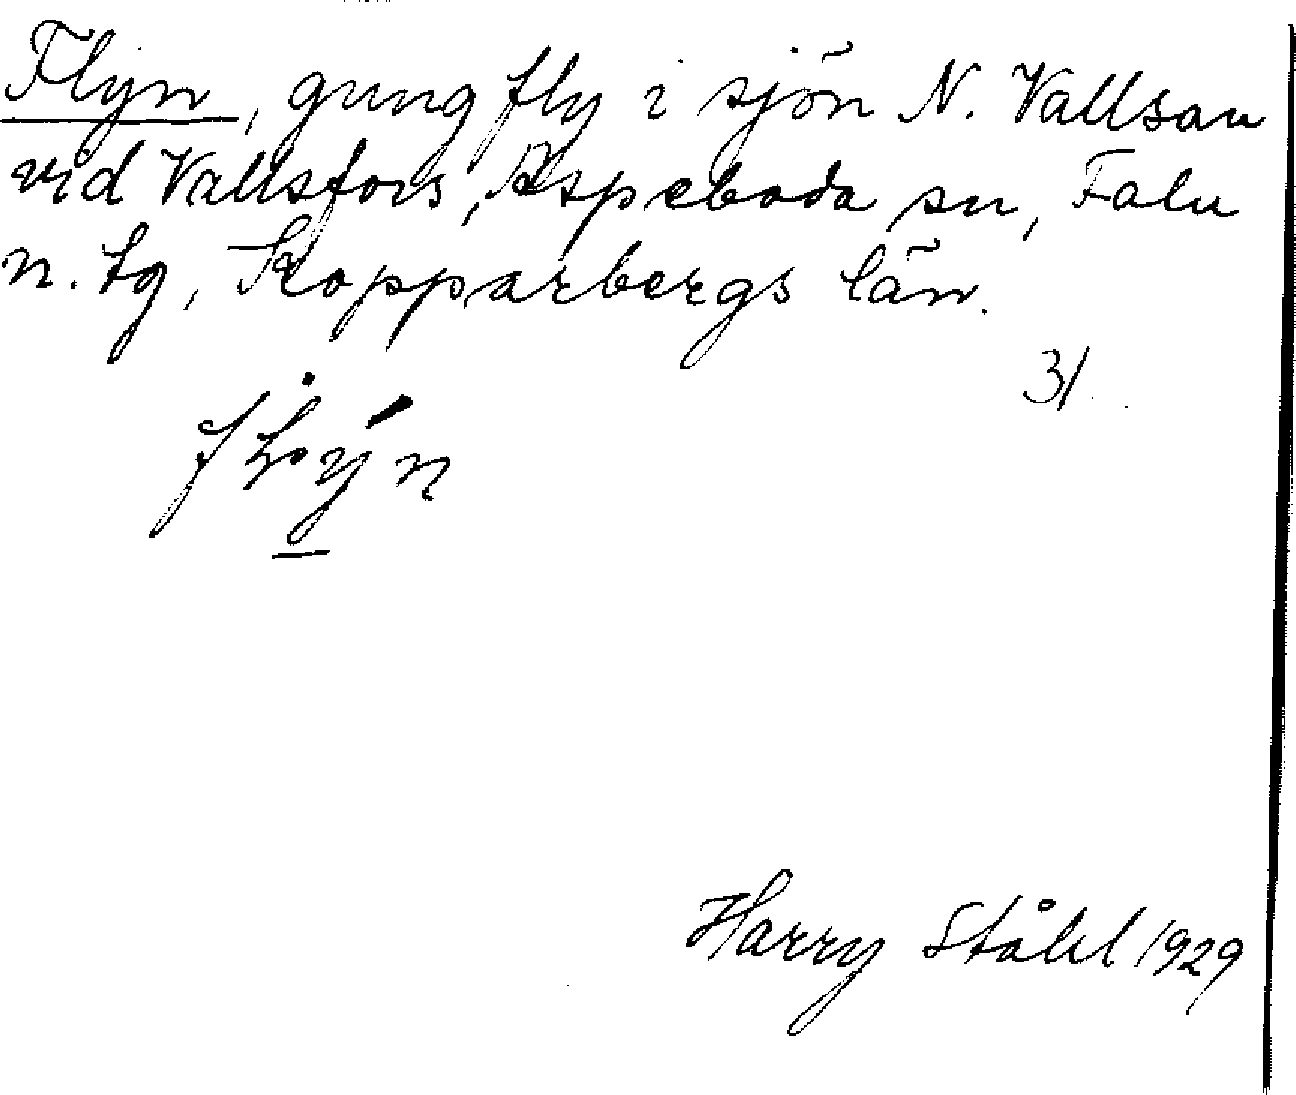 Flyn, gungfly i sjön N. Vallsan
vid Vallsfors, Aspeboda sn, Falu
n. tg, Kopparbergs län.
31.
Harry Ståhl 1929